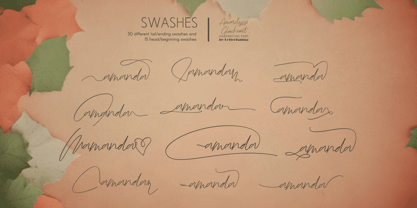 SWASHES
30 different tail/ending swashes and
15 head/beginning swashes
amanda amanda amanda
amanda amanda amanda
amanda amanda amanda
amanda amanda amanda